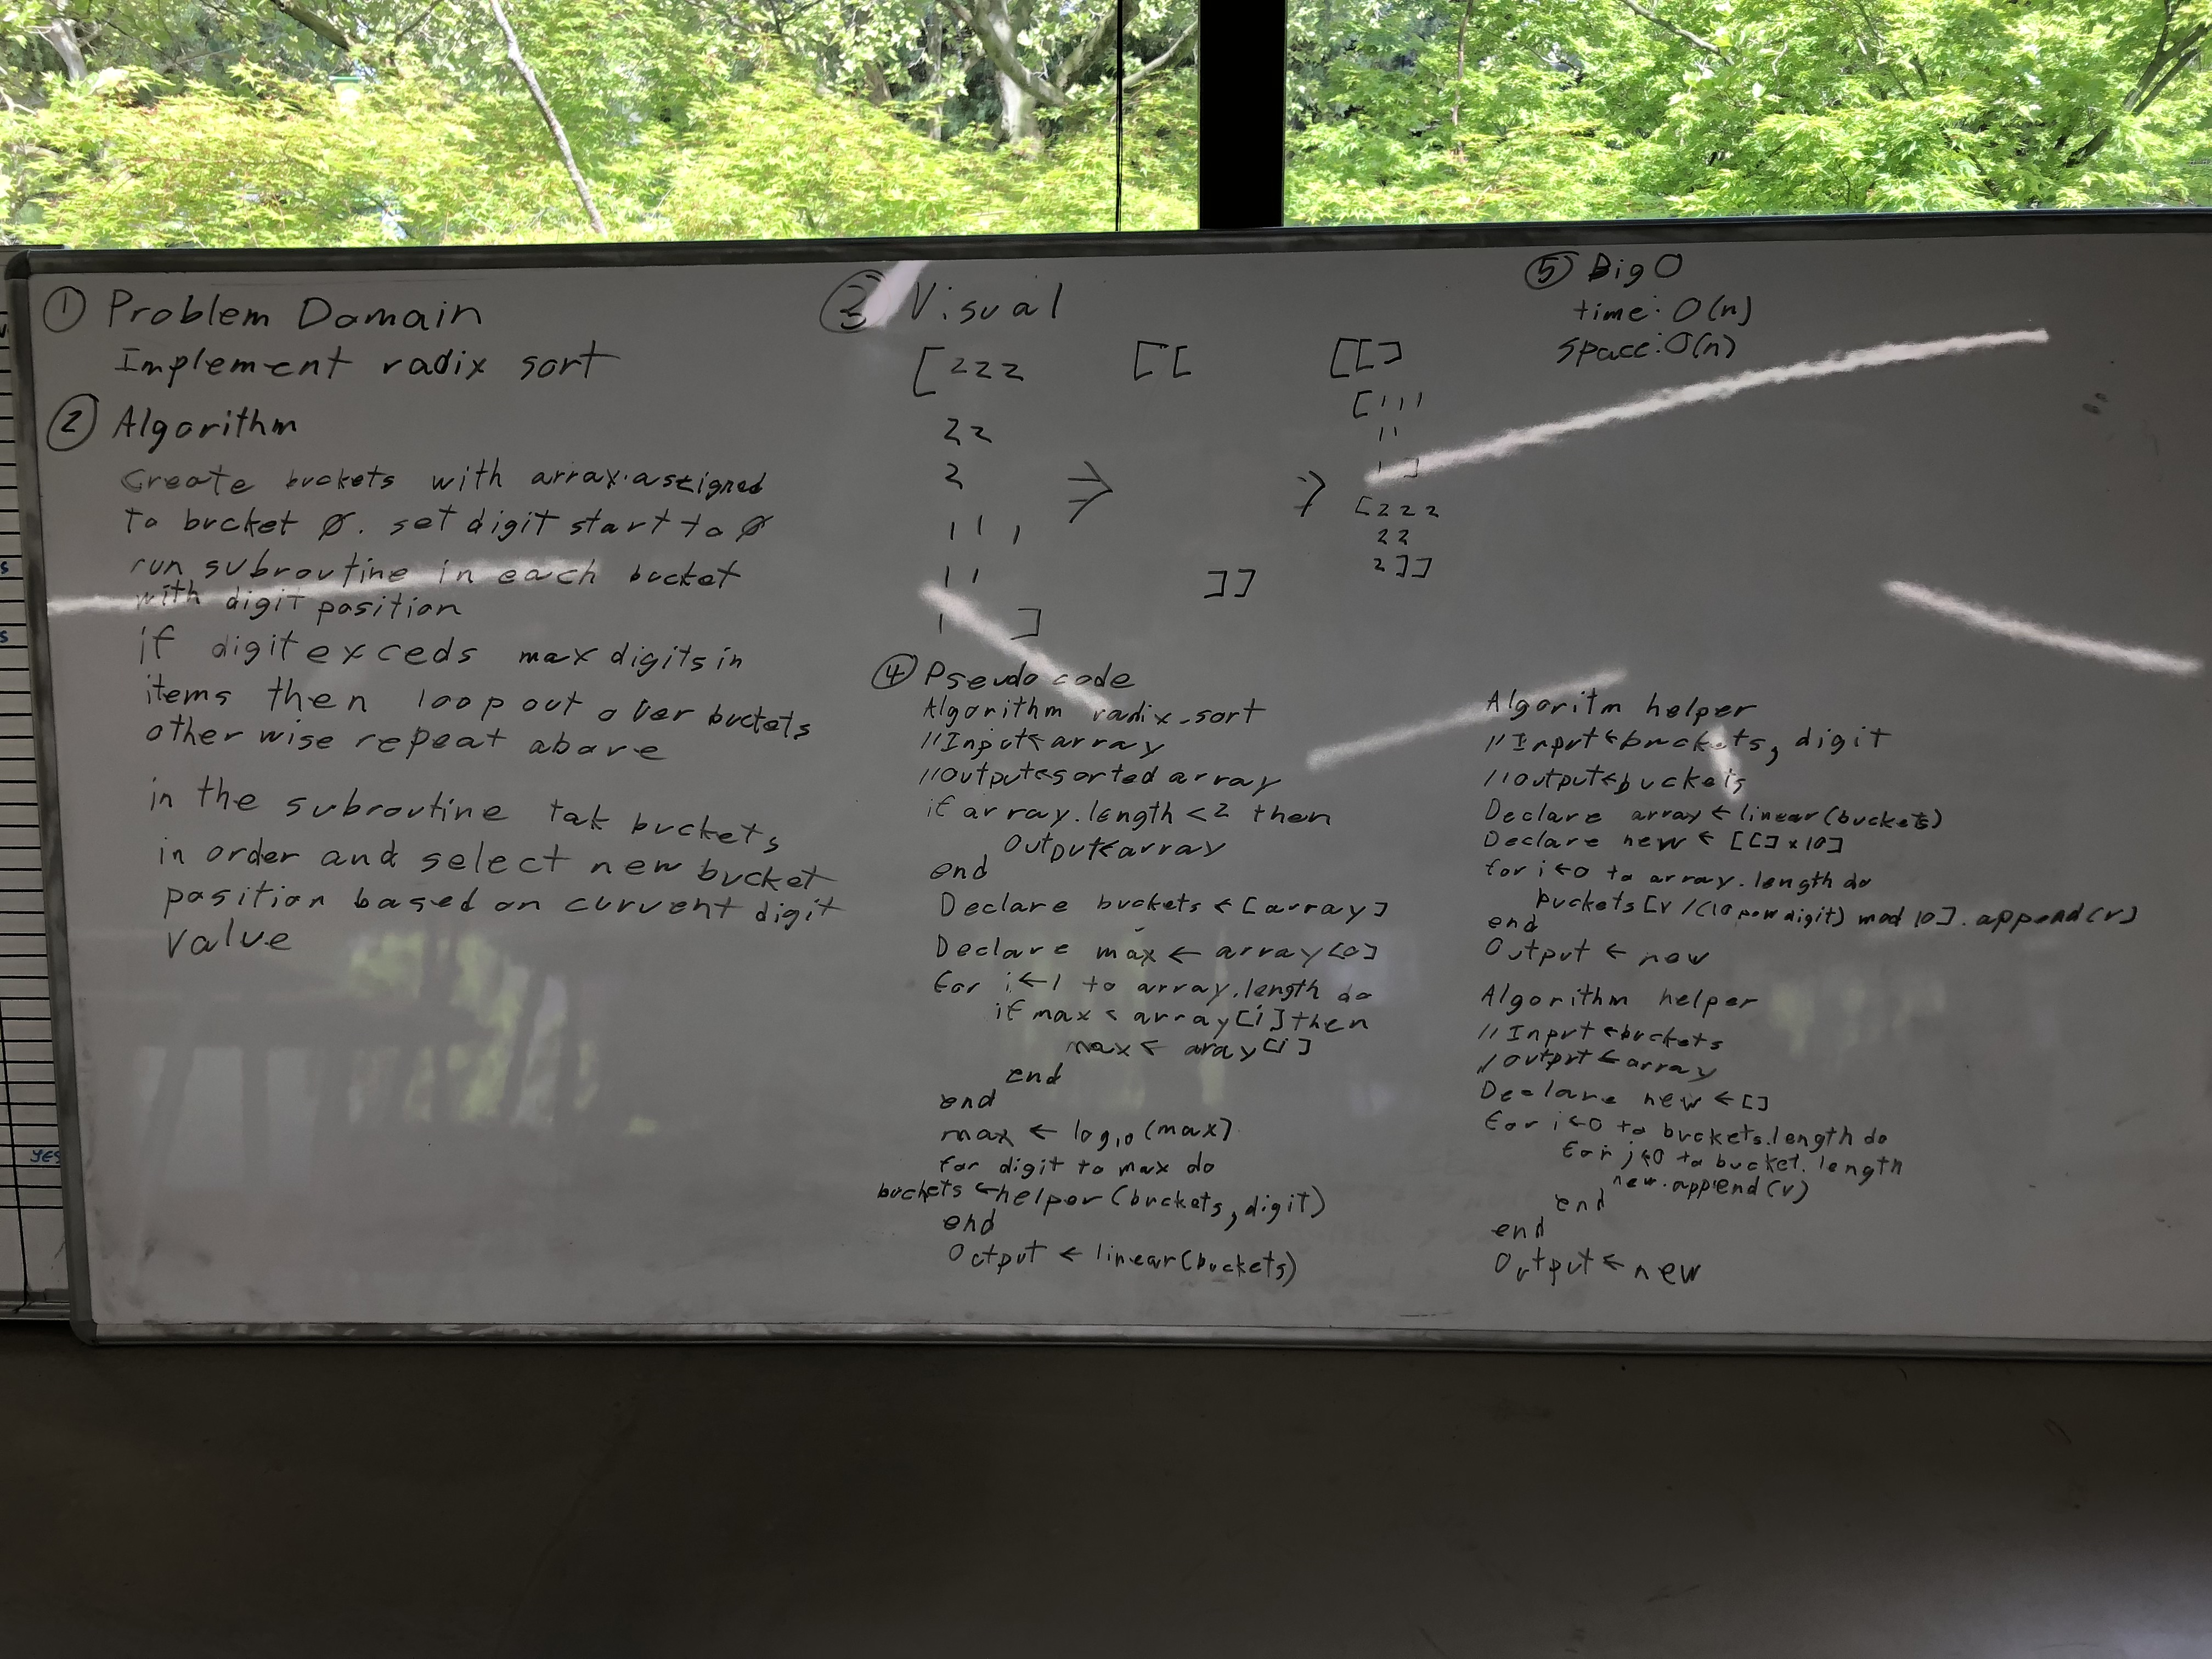 ① Problem Domain
Implement radix sort
② Algorithm
Create buckets with array assigned
to bucket 0. set digit start to 0
run subroutine in each bucket
with digit position
if digit exceds max digits in
items then loop out over buckets
other wise repeat above
in the subroutine tak buckets
in order and select new bucket
position based on current digit
value
③ Visual
[222 [[ [[]
22 [111
2 ⇒ 11
111 ⇒ 1]
11 ]] [222
1 ] 22
2]]
④ Pseudo code
Algorithm radix_sort
//Input←array
//Output←sorted array
if array.length <2 then
Output←array
end
Declare buckets ← [array]
Declare max ← array[0]
for i←1 to array.length do
if max < array[i] then
max ← aray[i]
end
end
max ← log10(max)
for digit to max do
buckets ←helper(buckets, digit)
end
Output ← linear(buckets)
⑤ Big O
time: O(n)
space: O(n)
Algoritm helper
//Input←buckets, digit
//output←buckets
Declare array ← linear(buckets)
Declare new ← [[]x10]
for i←0 to array.length do
buckets[v /(10 pow digit) mod 10].append(v)
end
Output ← new
Algorithm helper
//Input←buckets
//output←array
Declare new ←[]
for i←0 to buckets.length do
for j←0 to bucket.length
new.append(v)
end
end
Output← new
YES